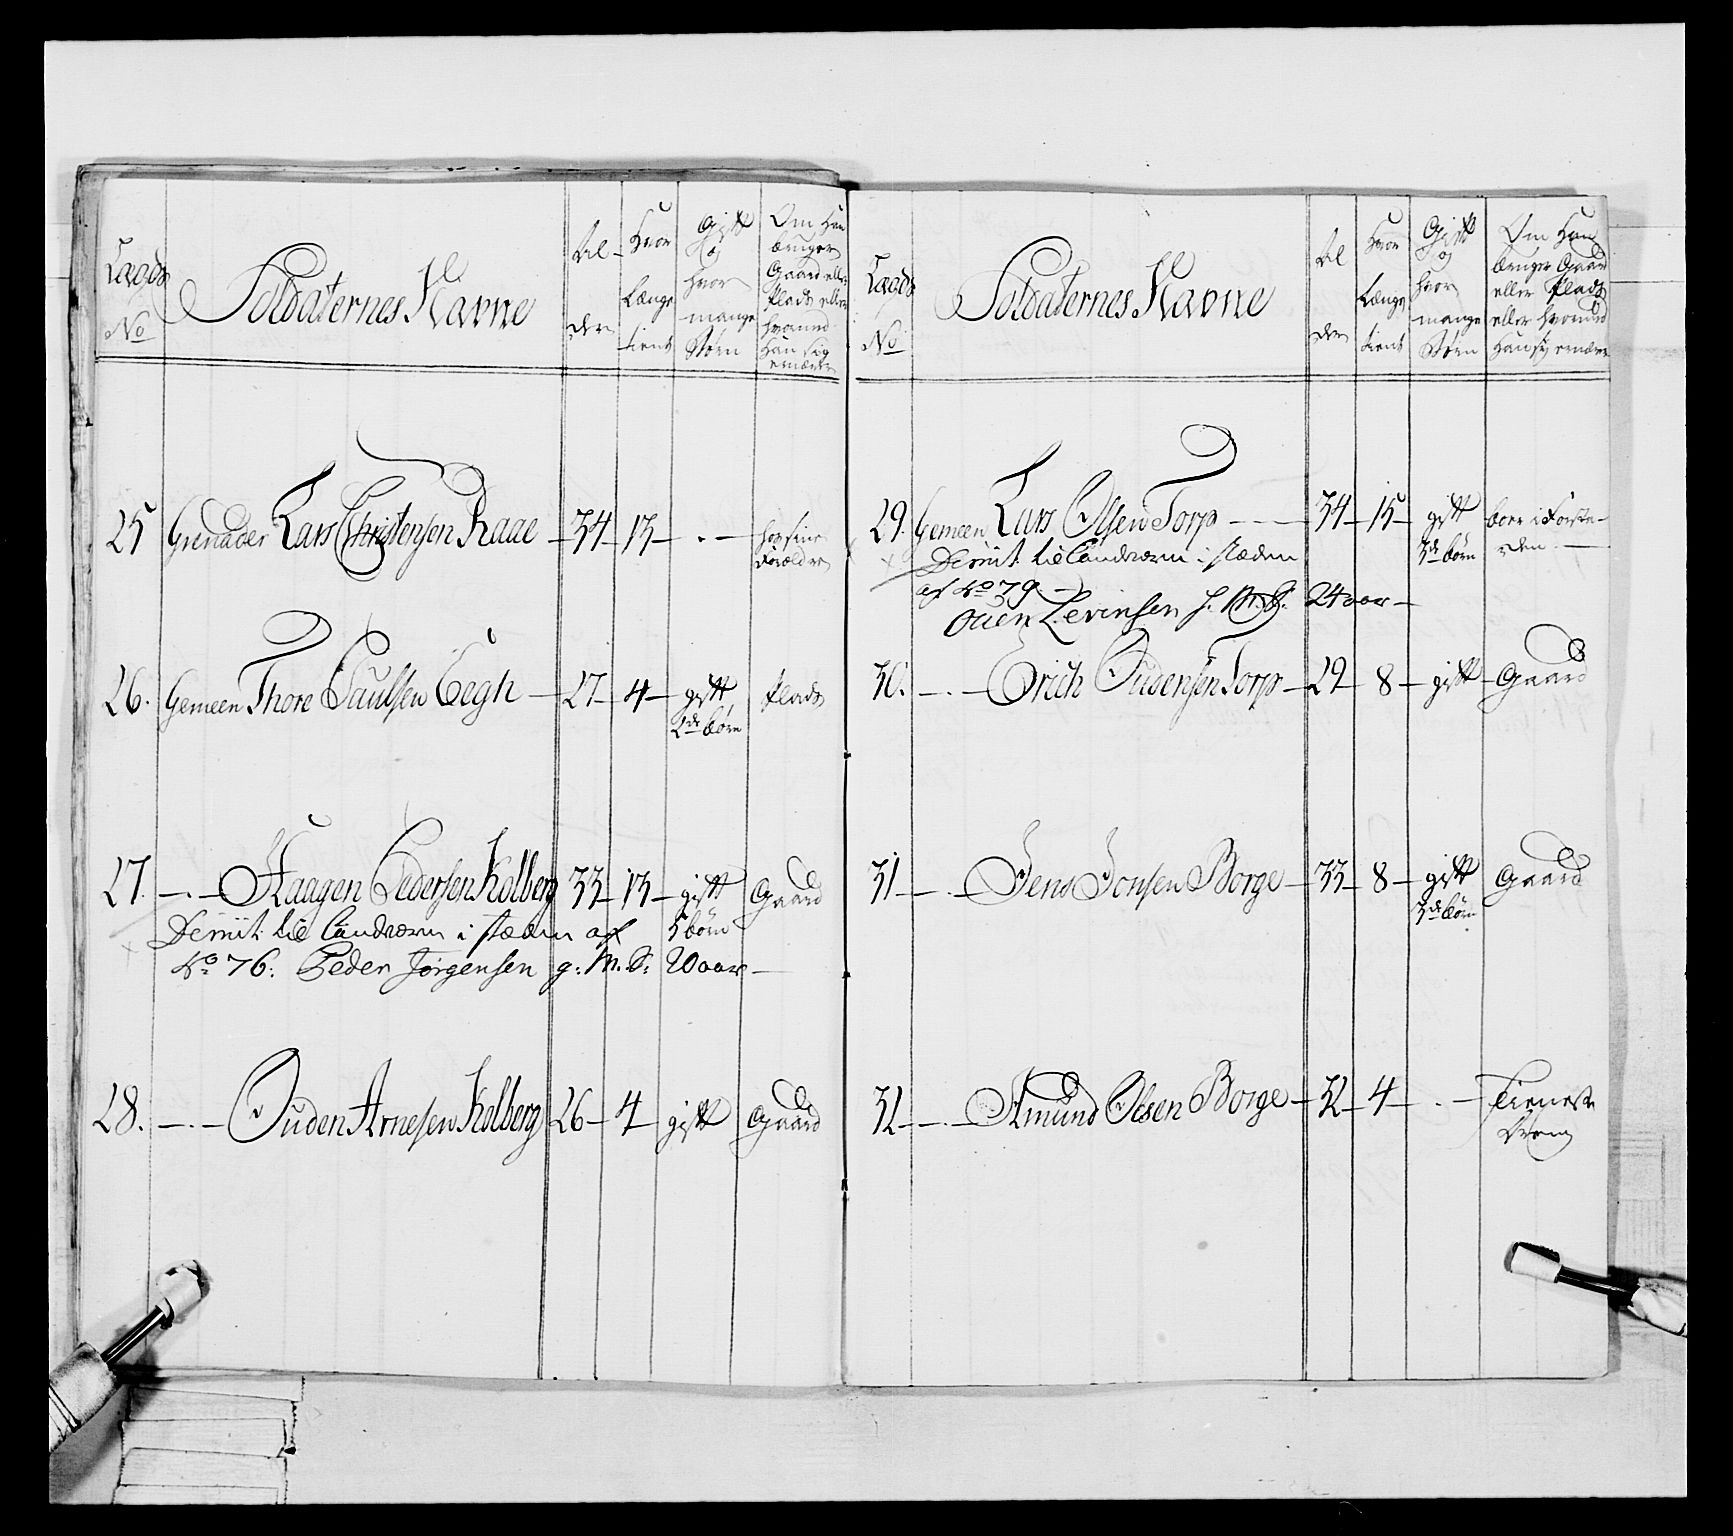 Lægds No
Soldaternes Navne
Alderen
Hvor Længe tient
Gift og hvor mange Børn
Om Han bruger Gaard eller Plads eller hvormed Han sig ernærer
25 Grenader Lars Christensen Raae — 34 — 13 — . — hos sine Forældre
26. Gemeen Thore Paulsen Eegh — 27 — 4 — gift Plads
2de børn
27. — . — Haagen Pedersen Kolberg 33 — 13 — gift Gaard
Demit: til Landværn i stæden af 5 børn
No 76: Peder Jørgensen g: M. S: 20 aar —
28. — . — Ouden Arnesen Kolberg 26 — 4 — gift Gaard
Lægds No
Soldaternes Navne
Alderen
Hvor Længe tient
Gift og hvor mange Børn
Om Han bruger Gaard eller Plads eller hvormed Han sig ernærer
29. Gemeen Lars Olsen Torp — 34 — 15 — gift boer i Forstæderne —
Demit: til Landværn i stæden 3de børn
af No 79 —
Ouen Levinsen f. M. S: 24 aar —
30. — . — Erich Oudensen Torp — 29 — 8 — gift — Gaard
31 — . — Jens Jonsen Borge — 33 — 8 — gift Gaard
3de børn
32 — . — Amund Olsen Borge — 32 — 4 — . — Tieneste
Dreng